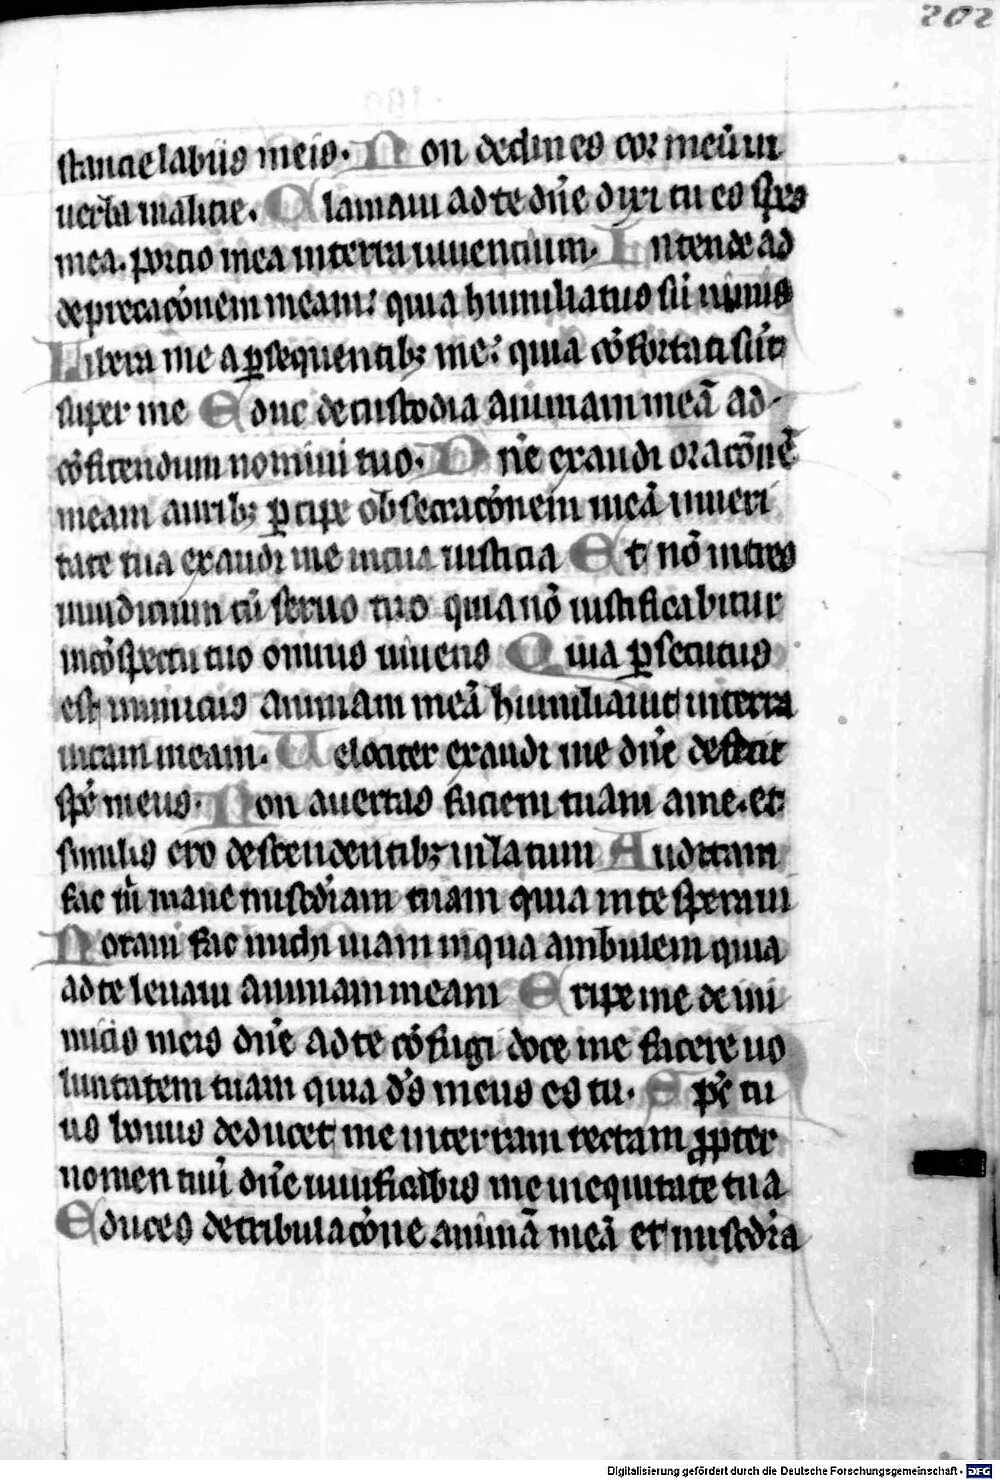 202
stancie labiis meis. Non declines cor meū in
verba malicie. Clamavi ad te dn̄e dixi tu es spes
mea. porcio mea in terra vivencium. Intende ad
deprecacōnem meam: quia humiliatus sū nimis
Libera me a ꝑsequentibꝫ me: quia cōfortati sūt
super me Educ de custodia animam meā ad
cōfitendum nomini tuo. Dn̄e exaudi oracōnē
meam auribꝫ ꝑcipe obsecracōnem meā in veri
tate tua exaudi me in tua iusticia Et nō intres
in iudicium cū servo tuo quia nō iustificabitur
in cōspectu tuo omnis vivens Quia ꝑsecutus
est inimicus animam meā humiliavit in terra
vitam meam. Velociter exaudi me dn̄e defecit
spc̄ meus. Non avertas faciem tuam a me. et
similis ero descendentibꝫ in lacum Auditam
fac m̄ mane mīscd̄iam tuam quia in te speravi
Notam fac michi viam in qua ambulem quia
ad te levavi animam meam Eripe me de ini
micis meis dn̄e ad te cōfugi doce me facere vo
luntatem tuam quia ds̄ meus es tu. Spc̄ tu
us bonus deducet me in terram rectam ꝓpter
nomen tuū dn̄e vivificabis me in equitate tua
Educes de tribulacōne animā meā et mīscd̄ia
Digitalisierung gefördert durch die Deutsche Forschungsgemeinschaft - DFG